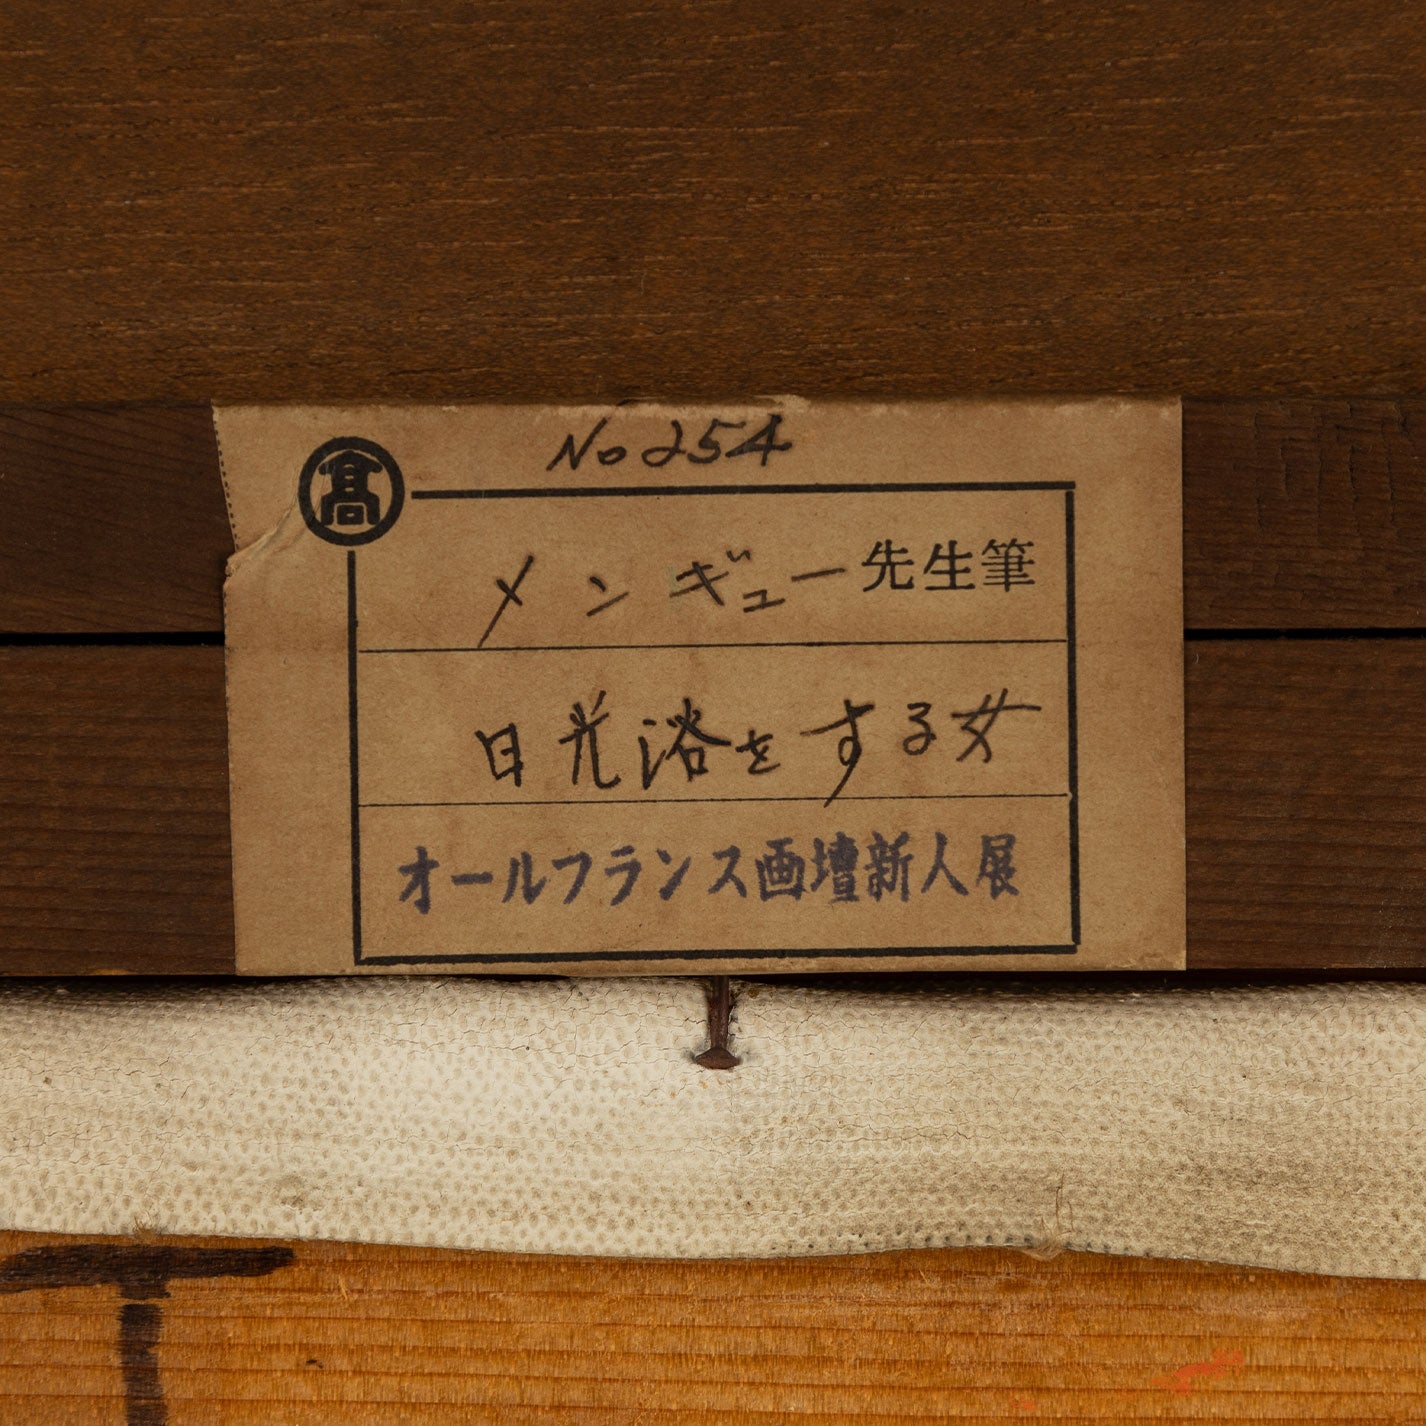 No 254
髙
メンギュー先生筆
日光浴をする女
オールフランス画壇新人展
T